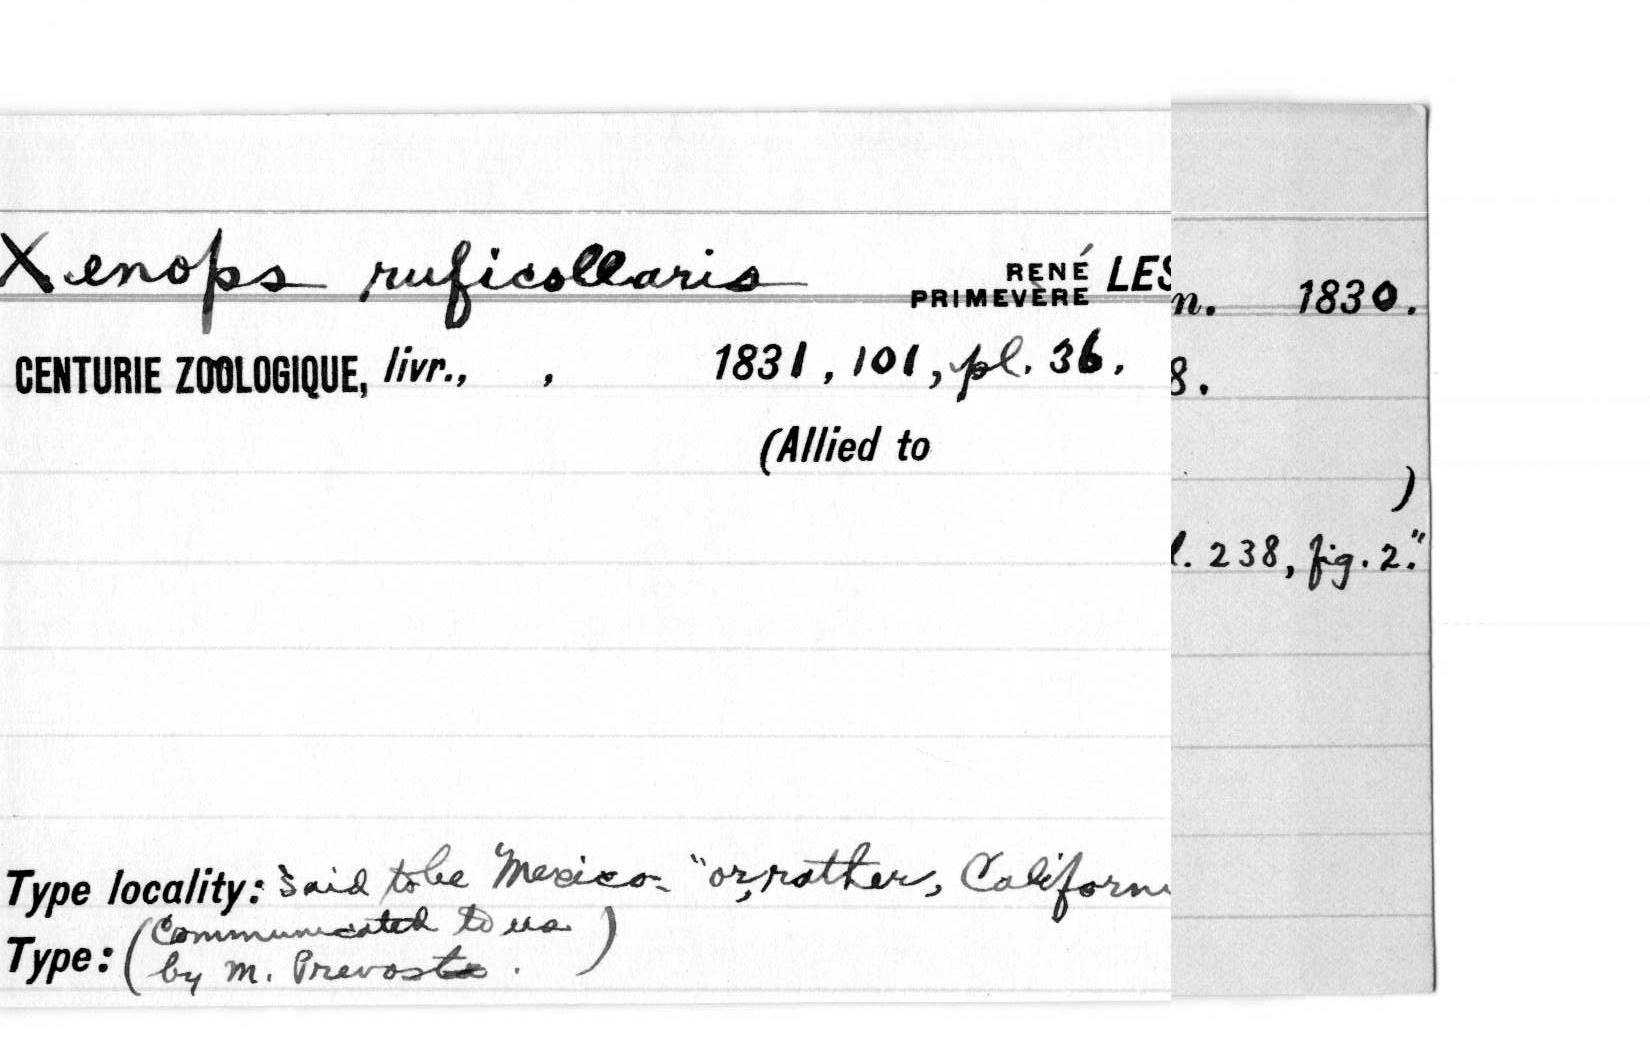 Xenops ruficollaris RENÉ PRIMEVÈRE LES n. 1830.
CENTURIE ZOOLOGIQUE, livr., , 1831, 101, pl. 36. 8.
(Allied to
)
l. 238, fig. 2."
Type locality: Said to be Mexico "or, rather, Californi
Type: (Communicated to us
by M. Prevost . )